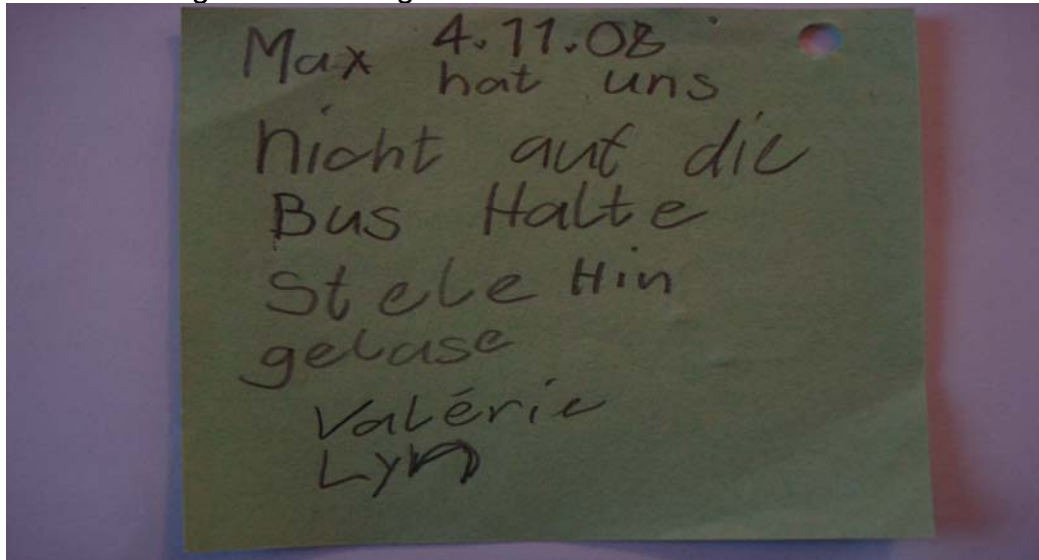 4.11.08
Max hat uns
nicht auf die
Bus Halte
Stele Hin
gelase
Valérie
Lyn